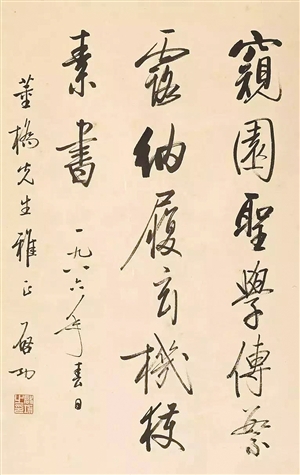 窺園聖學傳繁
露納履玄機獲
素書 一九八六年春日
董橋先生雅正 启功